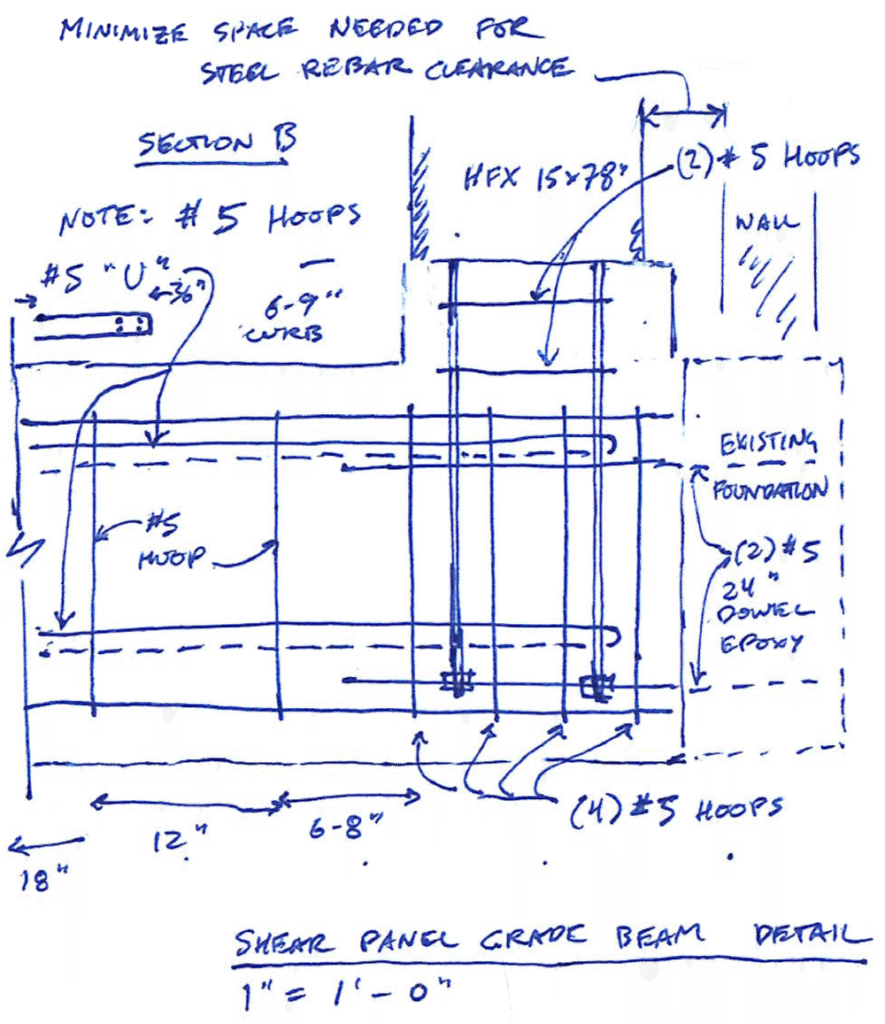 MINIMIZE SPACE NEEDED FOR
STEEL REBAR CLEARANCE
SECTION B
HFX 15x78"
(2) # 5 HOOPS
NOTE: # 5 HOOPS
WALL
#5 "U"
36"
6-9"
CURB
EXISTING
FOUNDATION
#5
HOOP
(2) #5
24"
DOWEL
EPOXY
(4) #5 HOOPS
12"
6-8"
18"
SHEAR PANEL GRADE BEAM DETAIL
1" = 1'-0"